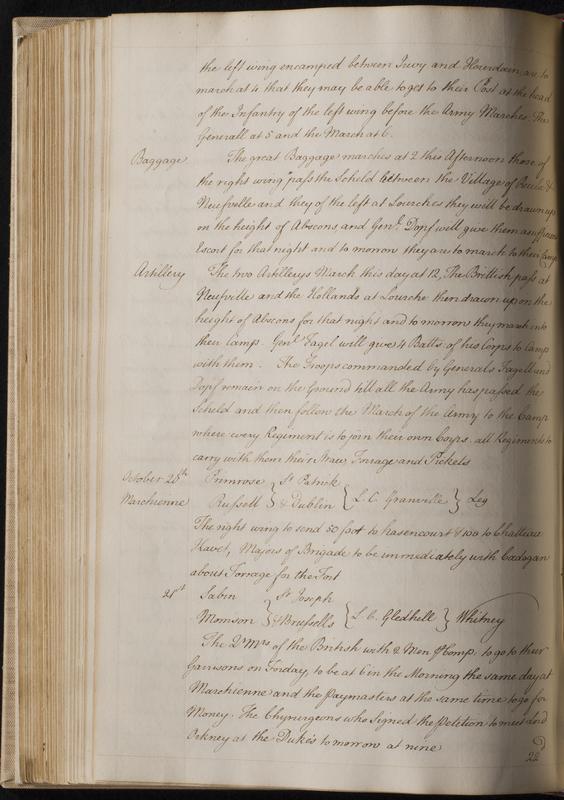 the left wing encamped between Inwy and Hourdain are to
march at 4 that they may be able to get to their Post at the head
of the Infantry of the left wing before the Army Marches. The
Generall at 5 and the March at 6.
Baggage The great Baggage marches at 2 this Afternoon those of
the right wing pass the Scheld between the Village of &
Neufville and they of the left at Lourches they will be drawn up
on the height of Abscons and Genl. Dopf will give them a sufficient
Escort for that night and to morrow they are to march to their Camp
Artillery The two Artillerys March this day at 12, The Brittish pass at
Neufville and the Hollands at Lourche then drawn up on the
height of Abscons for that night and to morrow they march into
their Camp. Genl. Fagel will give 4 Batts. of his Corps to Camp
with them. The Troops commanded by Generals Fagell and
Dopf remain on the Ground till all the Army has passed the
Scheld and then follow the March of the Army to the Camp
where every Regiment is to join their own Corps. all Regiments to
carry with them their Straw, Forrage and Pickets
October 20th Primrose } St Patrick
Marchienne Russell } & Dublin { L. C. Granville } Leg
The right wing to send 50 foot to hasencourt & 100 to Chattuau
Havet, Majors of Brigade to be immediately with Cadogan
about Forrage for the Fort
21st Sabin } St Joseph
Momson } & Brussells { L. C. Gledhill } Whitney
The Qr Mrs of the British with 2 Men Comp. to go to their
Garrisons on Forday, to be at 6 in the Morning the same day at
Marchienne and the Paymasters at the same time to go for
Money. The Chyrurgeons who signed the Petition to meet Lord
Orkney at the Dukes to morrow at nine
22